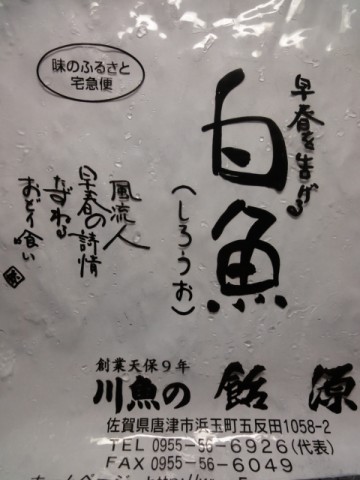 味のふるさと
宅急便
早春を告げる
白魚
(しろうお)
風流人
早春の詩情
たずねる
おどり喰い
創業天保9年
川魚の 飴源
佐賀県唐津市浜玉町五反田1058-2
TEL 0955-56-6926(代表)
FAX 0955-56-6049
ホームページ